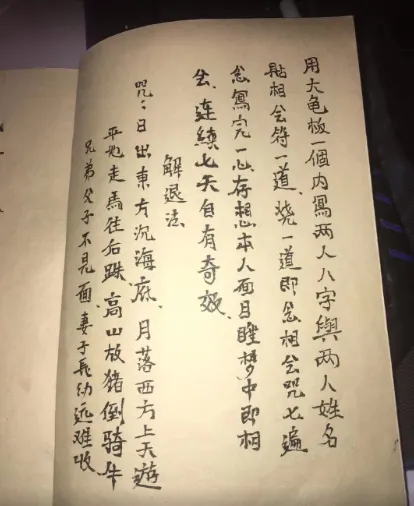 用大龟板一個内寫两人八字與两人姓名
貼相会符一道、烧一道即念相会咒七遍
念寫完一心存想本人面目睡梦中即相
会、連續七天自有奇效、
解退法
咒：日出東方沉海底、月落西方上天遊
平地走馬往后跌、高山放猪倒騎牛
兄弟父子不見面妻子長幼远难收